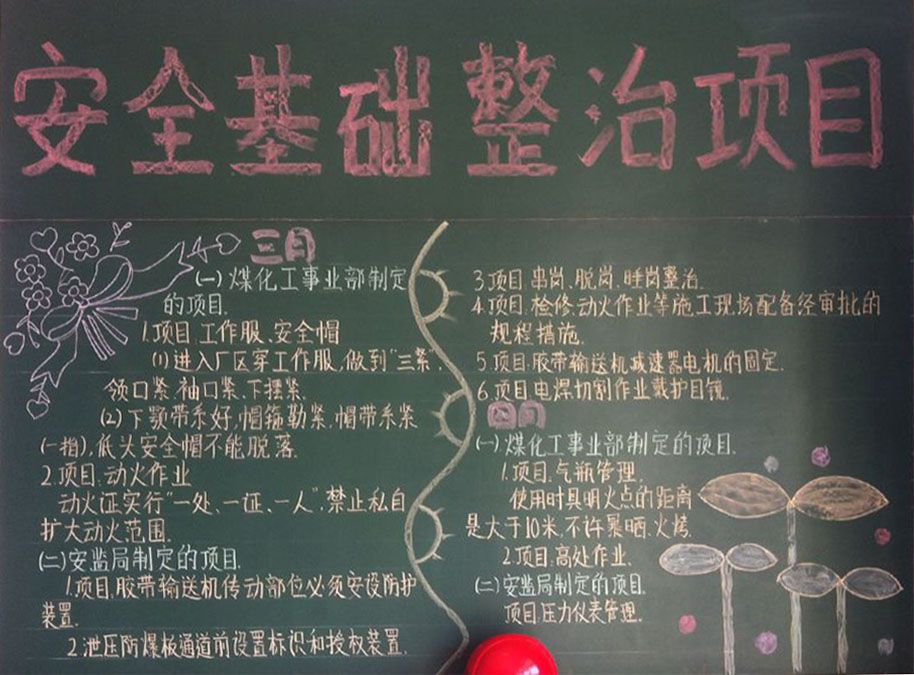 安全基础整治项目
三月
(一)煤化工事业部制定
的项目.
1.项目.工作服、安全帽
(1)进入厂区穿工作服,做到"三紧".
领口紧.袖口紧、下摆紧.
(2)下颚带系好,帽箍勒紧,帽带系紧
(一指),低头安全帽不能脱落.
2.项目.动火作业
动火证实行"一处、一证、一人".禁止私自
扩大动火范围.
(二)安监局制定的项目.
1.项目.胶带输送机传动部位必须安设防护
装置.
2.泄压防爆板通道前设置标识和授权装置.
3.项目.串岗、脱岗、睡岗整治.
4.项目.检修.动火作业等施工现场配备经审批的
规程措施.
5.项目.胶带输送机减速器电机的固定.
6.项目.电焊切割作业戴护目镜.
四月
(一)煤化工事业部制定的项目.
1.项目.气瓶管理.
使用时具明火点的距离
是大于10米.不许暴晒.火烤.
2.项目.高处作业.
(二)安监局制定的项目.
项目.压力仪表管理.